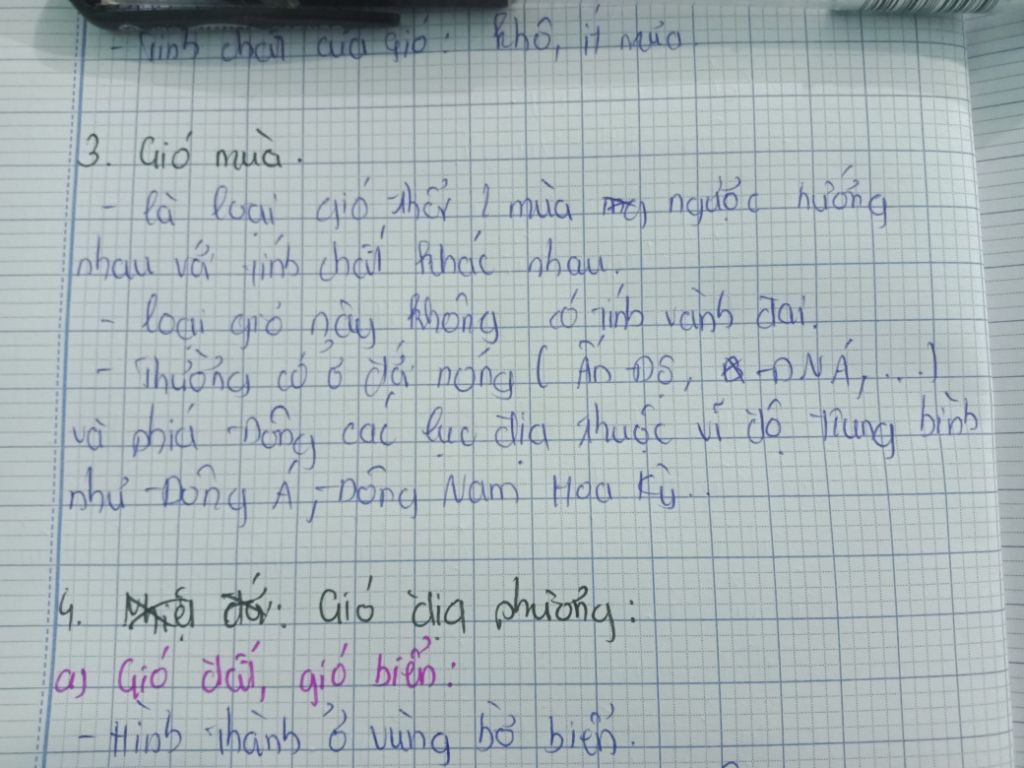 - Tính chất của gió: khô, ít mưa
3. Gió mùa.
- là loại gió thổi 2 mùa ngược hướng
nhau với tính chất khác nhau.
- loại gió này không có tính vành đai.
- Thường có ở đới nóng ( Ấn Độ, ĐNÁ, ...)
và phía Đông các lục địa thuộc vĩ độ trung bình
như Đông Á, Đông Nam Hoa Kỳ.
4. Gió địa phương:
a) Gió đất, gió biển:
- Hình thành ở vùng bờ biển.